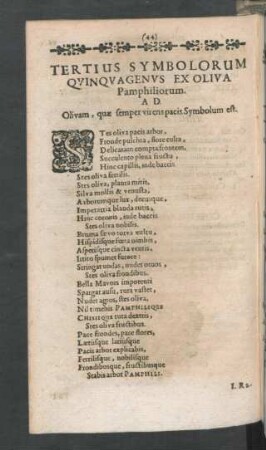 (44)
TERTIUS SYMBOLORUM
QVINQVAGENVS EX OLIVA
Pamphiliorum.
A D
Olivam, quæ semper virens pacis Symbolum est.
STes oliva pacis arbor,
Fronde pulchra, flore culta,
Delicatam compta frontem,
Succulento plena fructu,
Hinc capillis, inde baccis
Stes oliva fertilis.
Stes oliva, planta mitis,
Silva mollis & venusta,
Arborumque lux, decusque,
Imperantia blanda
Hinc coronis, inde baccis
Stes oliva nobilis.
Bruma sævo vultu,
Hispidisque sæva nimbis,
Asperisque cincta ventis,
Intro spumet furore:
Stringat undas, nudet ornos,
Stes oliva frondibus.
Bella Mavors impotenti
Spargat ausu, rura vastet,
Nudet agros, stes oliva,
Nil timebis PAMPHILIÆQUE
tota dextra,
Stes oliva fructibus.
Pace frondes, pace flores,
Lætiusque latiusque
Pacis arbor explicabis,
Fertilisque, nobilisque
Frondibusque, fructibusque
Stabis arbor PAMPHILI.